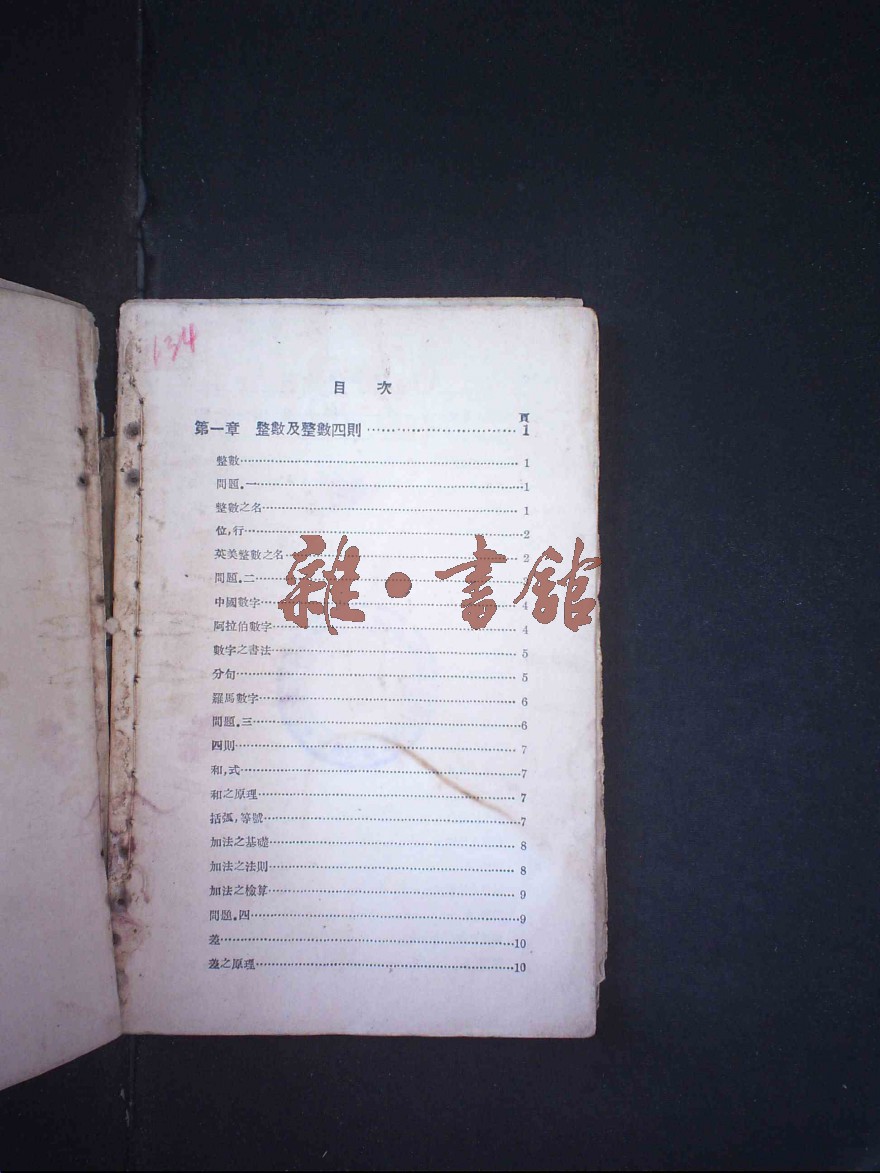 134
目 次
頁
第一章 整數及整數四則…………………………1
整數……………………………………………1
問題.一…………………………………………1
整數之名………………………………………1
位,行……………………………………………2
英美整數之名…………………………………2
問題.二…………………………………………
中國數字………………………………………4
阿拉伯數字……………………………………4
數字之書法……………………………………5
分句……………………………………………5
羅馬數字………………………………………6
問題.三…………………………………………6
四則……………………………………………7
和,式……………………………………………7
和之原理………………………………………7
括弧,等號………………………………………7
加法之基礎……………………………………8
加法之法則……………………………………8
加法之檢算……………………………………9
問題.四…………………………………………9
差………………………………………………10
差之原理………………………………………10
雜·書館